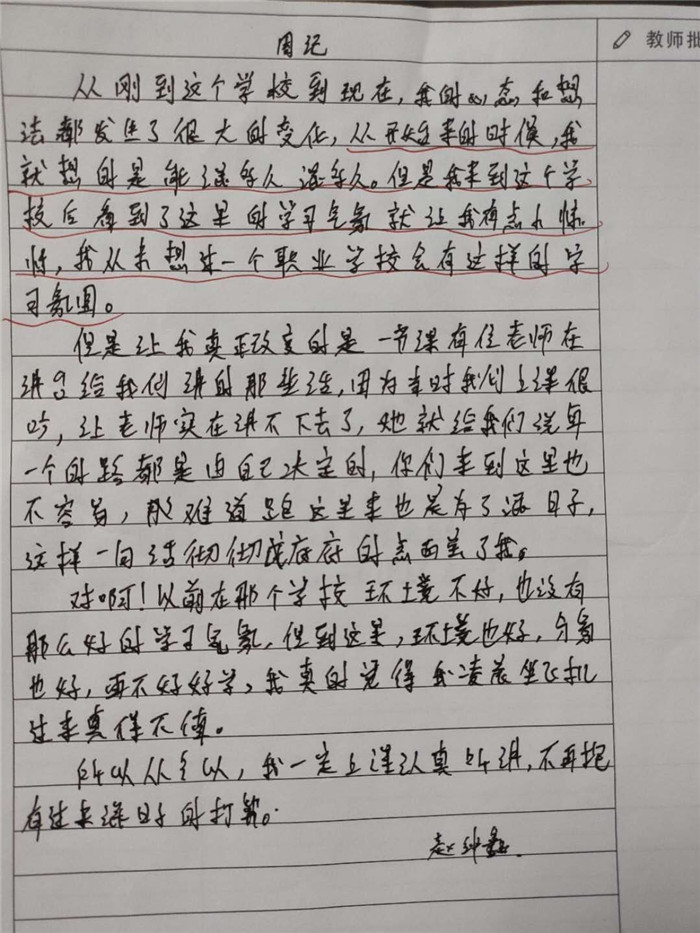 周记
教师批
从刚到这个学校到现在,我的心态和想
法都发生了很大的变化,从开始来的时候,我
就想的是能混多久混多久。但是我来到这个学
校后看到了这里的学习气氛就让我有点小惊
,我从未想过一个职业学校会有这样的学
习氛围。
但是让我真正改变的是一节课有位老师在
讲台给我们讲的那些话,因为当时我们上课很
吵,让老师实在讲不下去了,她就给我们说每
一个的路都是由自己决定的,你们来到这里也
不容易,那难道跑这里来也是为了混日子,
这样一句话彻彻底底的点醒了我。
对啊!以前在那个学校环境不好,也没有
那么好的学习气氛,但到这里,环境也好,分氛
也好,再不好好学,我真的觉得我凌晨坐飞机
过来真得不值。
所以从今以,我一定上课认真听讲,不再抱
有过来混日子的打算。
赵